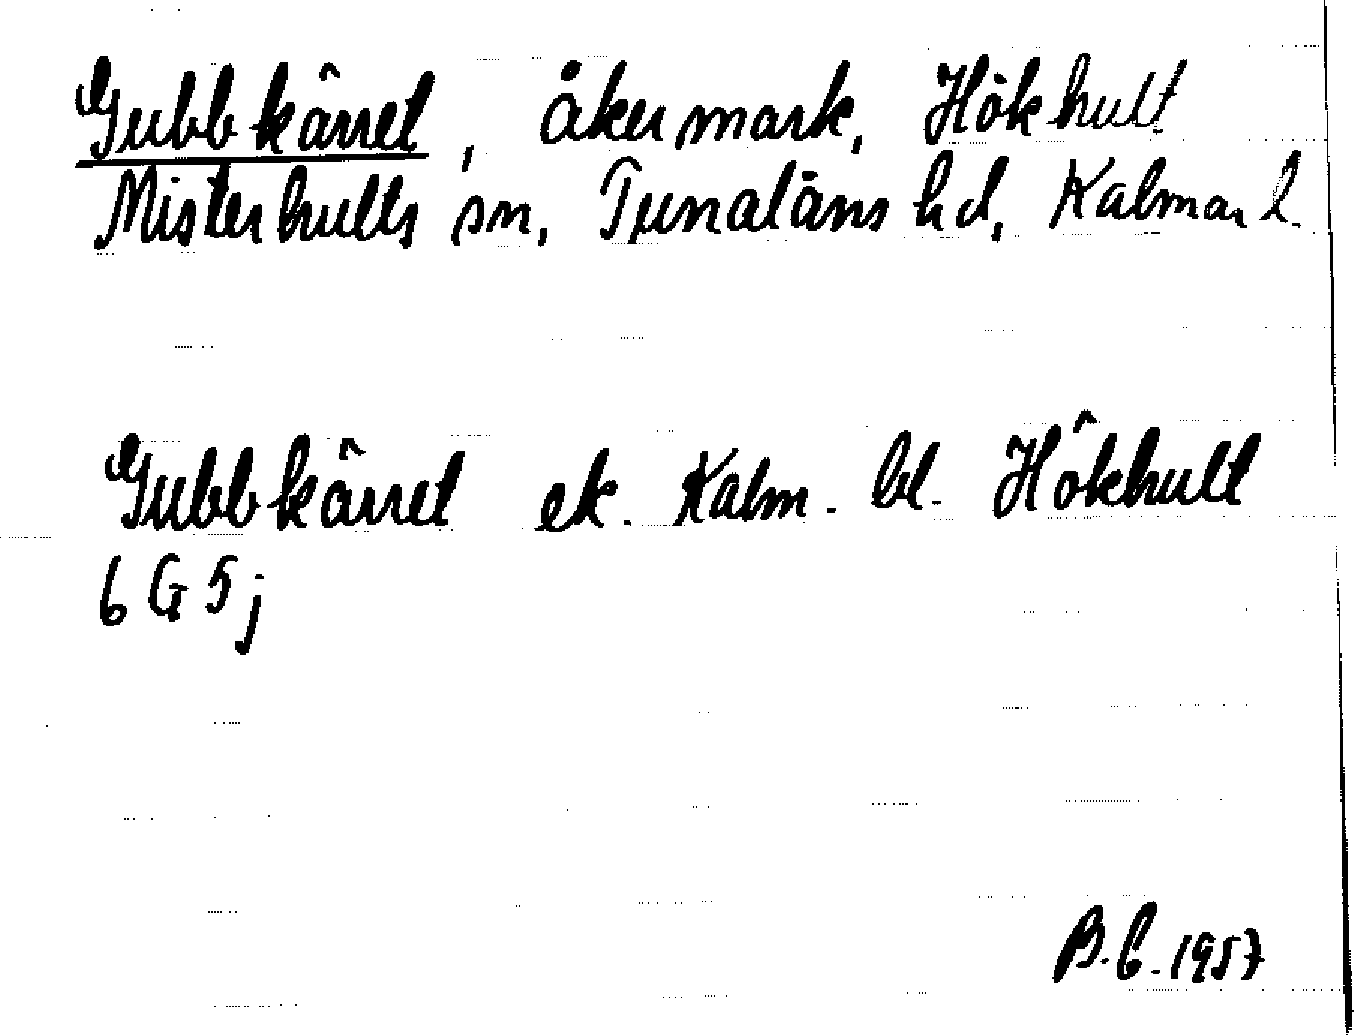 Gubbkärret, åkermark, Hökhult
Misterhults sn, Tunaläns hd, Kalmar l.
Gubbkärret ek. Kalm. bl. Hökhult
6G5j
B.C. 1957